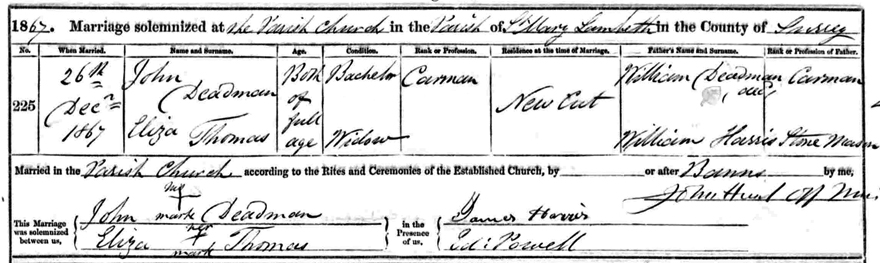 1867. Marriage solemnized at the Parish Church in the Parish of St Mary Lambeth in the County of Surrey
No. When Married. Name and Surname. Age. Condition. Rank or Profession. Residence at the time of Marriage. Father's Name and Surname. Rank or Profession of Father.
225 26th Decr 1867 John Deadman Both of full age Bachelor Carman New Cut William Deadman Carman
Eliza Thomas Widow William Harris Stone Mason
Married in the Parish Church according to the Rites and Ceremonies of the Established Church, by or after Banns by me,
John Hunt Off Min
This Marriage was solemnized between us, John Deadman mark in the Presence of us, James Harris
Eliza Thomas her mark Ed: Powell